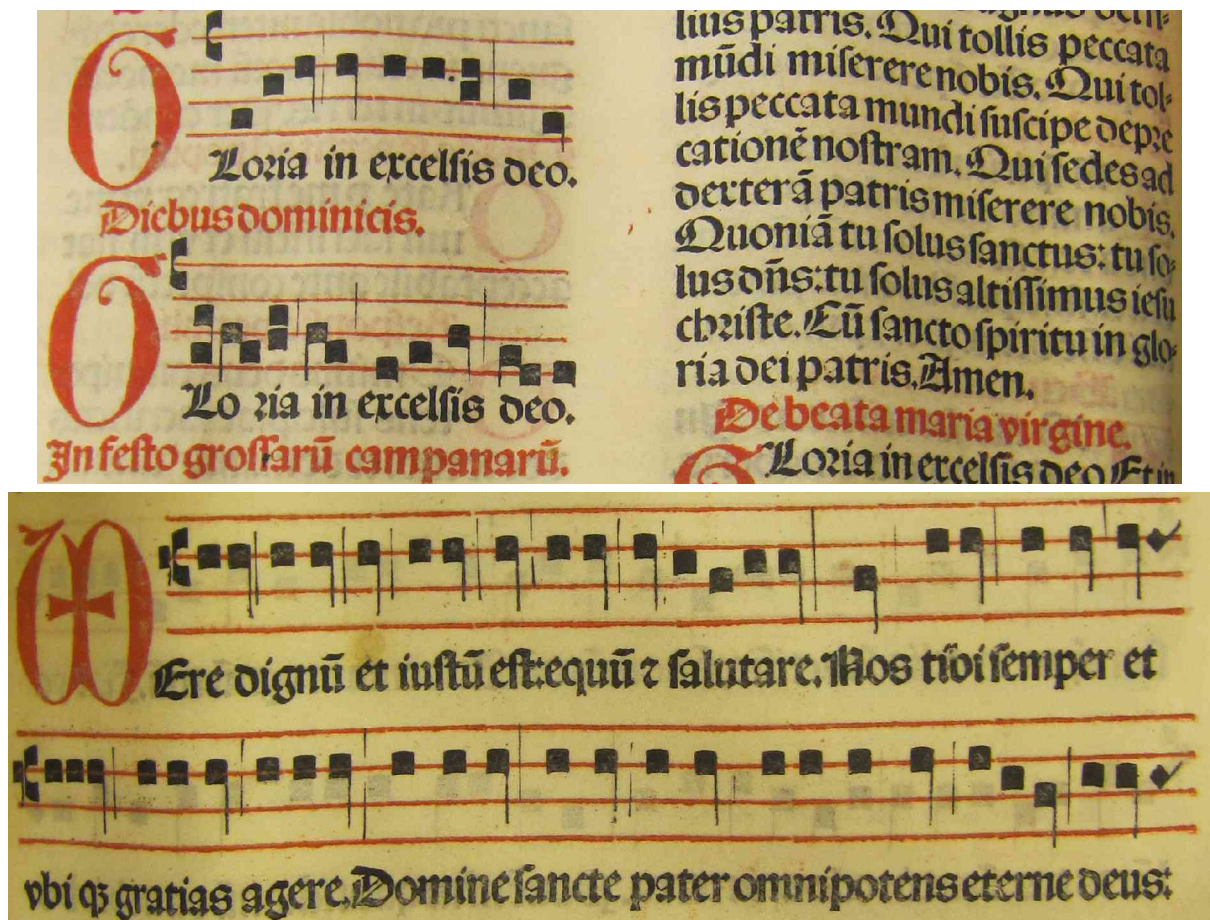 GLoria in excelsis deo.
Diebus dominicis.
GLo ria in excelsis deo.
In festo grossarū campanarū.
lius patris. Qui tollis peccata
mūdi miserere nobis. Qui tol-
lis peccata mundi suscipe depre
cationē nostram. Qui sedes ad
dexterā patris miserere nobis.
Quoniā tu solus sanctus: tu so-
lus dn̄s: tu solus altissimus iesu
christe. Cū sancto spiritu in glo-
ria dei patris. Amen.
De beata maria virgine.
GLoria in excelsis deo Et in
VEre dignū et iustū est: equū ⁊ salutare. Nos tibi semper et
vbi qꝫ gratias agere. Domine sancte pater omnipotens eterne deus: